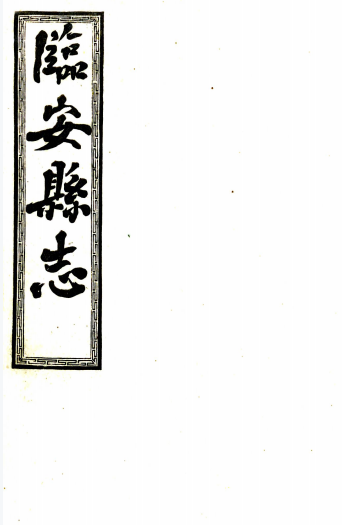 臨安縣志